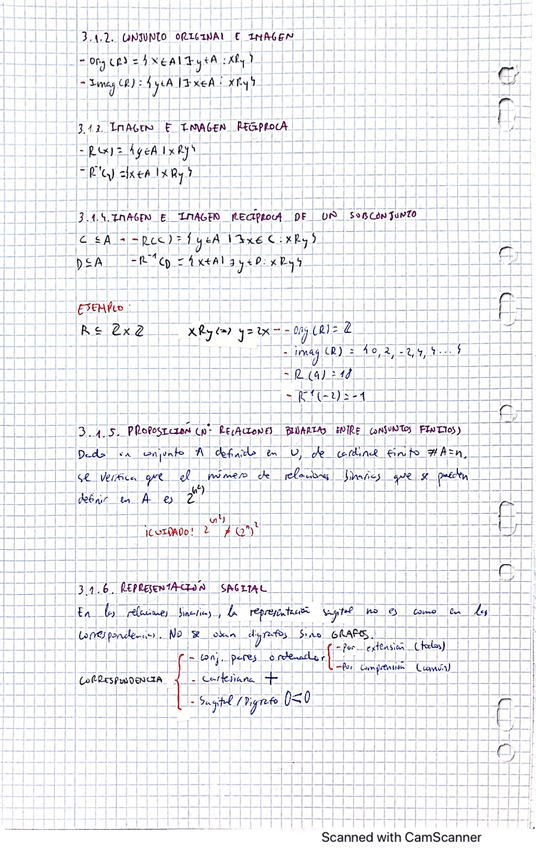 3.1.2. CONJUNTO ORIGINAL E IMAGEN
- Orig (R) = { x ∈ A | ∃ y ∈ A : xRy }
- Imag (R) : { y ∈ A | ∃ x ∈ A : xRy }
3.1.3. IMAGEN E IMAGEN RECÍPROCA
- R(x) = { y ∈ A | xRy }
- R⁻¹(y) = { x ∈ A | xRy }
3.1.4. IMAGEN E IMAGEN RECÍPROCA DE UN SUBCONJUNTO
C ⊆ A - - R(C) = { y ∈ A | ∃ x ∈ C : xRy }
D ⊆ A - R⁻¹(D = { x ∈ A | ∃ y ∈ D : xRy }
EJEMPLO:
R ⊆ Z x Z xRy (=) y = 2x - - Orig (R) = Z
- imag (R) = { 0, 2, -2, 4, 4 ... }
- R (9) = 18
- R⁻¹ (-2) = -1
3.1.5. PROPOSICIÓN (Nº RELACIONES BINARIAS ENTRE CONJUNTOS FINITOS)
Dado un conjunto A definido en U, de cardinal finito #A = n,
se verifica que el número de relaciones binarias que se pueden
definir en A es 2^(n²)
¡CUIDADO! 2^(n²) ≠ (2ⁿ)²
3.1.6. REPRESENTACIÓN SAGITAL
En las relaciones binarias, la representación sagital no es como en las
correspondencias. NO se usan digrafos sino GRAFOS.
CORRESPONDENCIA
- conj. pares ordenador
- Por extensión (todos)
- Por comprensión (común)
- Cartesiana
- Sagital / Digrafo
Scanned with CamScanner